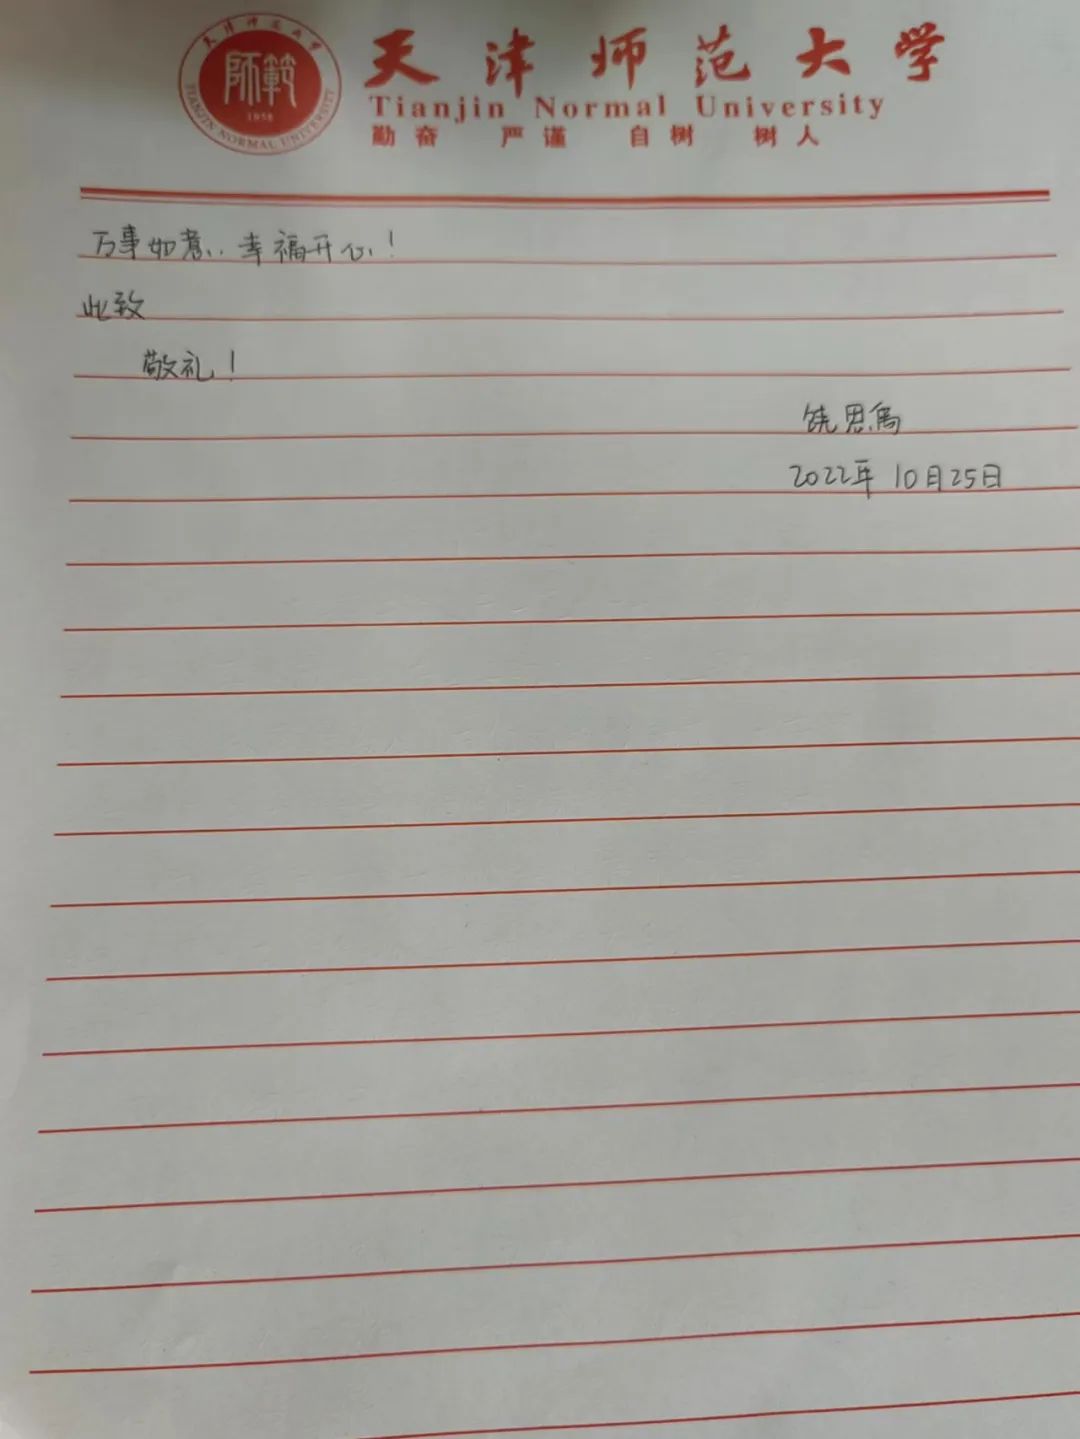 天津师范大学
師範
1958
TIANJIN NORMAL UNIVERSITY
天津师范大学
Tianjin Normal University
勤奋 严谨 自树 树人
万事如意,幸福开心!
此致
敬礼!
饶思
2022年10月25日